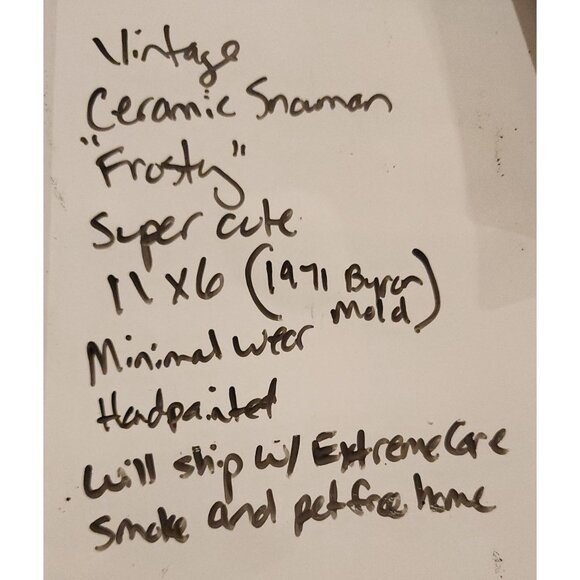 Vintage
Ceramic Snowman
"Frosty"
Super cute
11 x 6 (1971 Byron
Mold)
Minimal wear
Handpainted
will ship w/ Extreme Care
smoke and pet free home